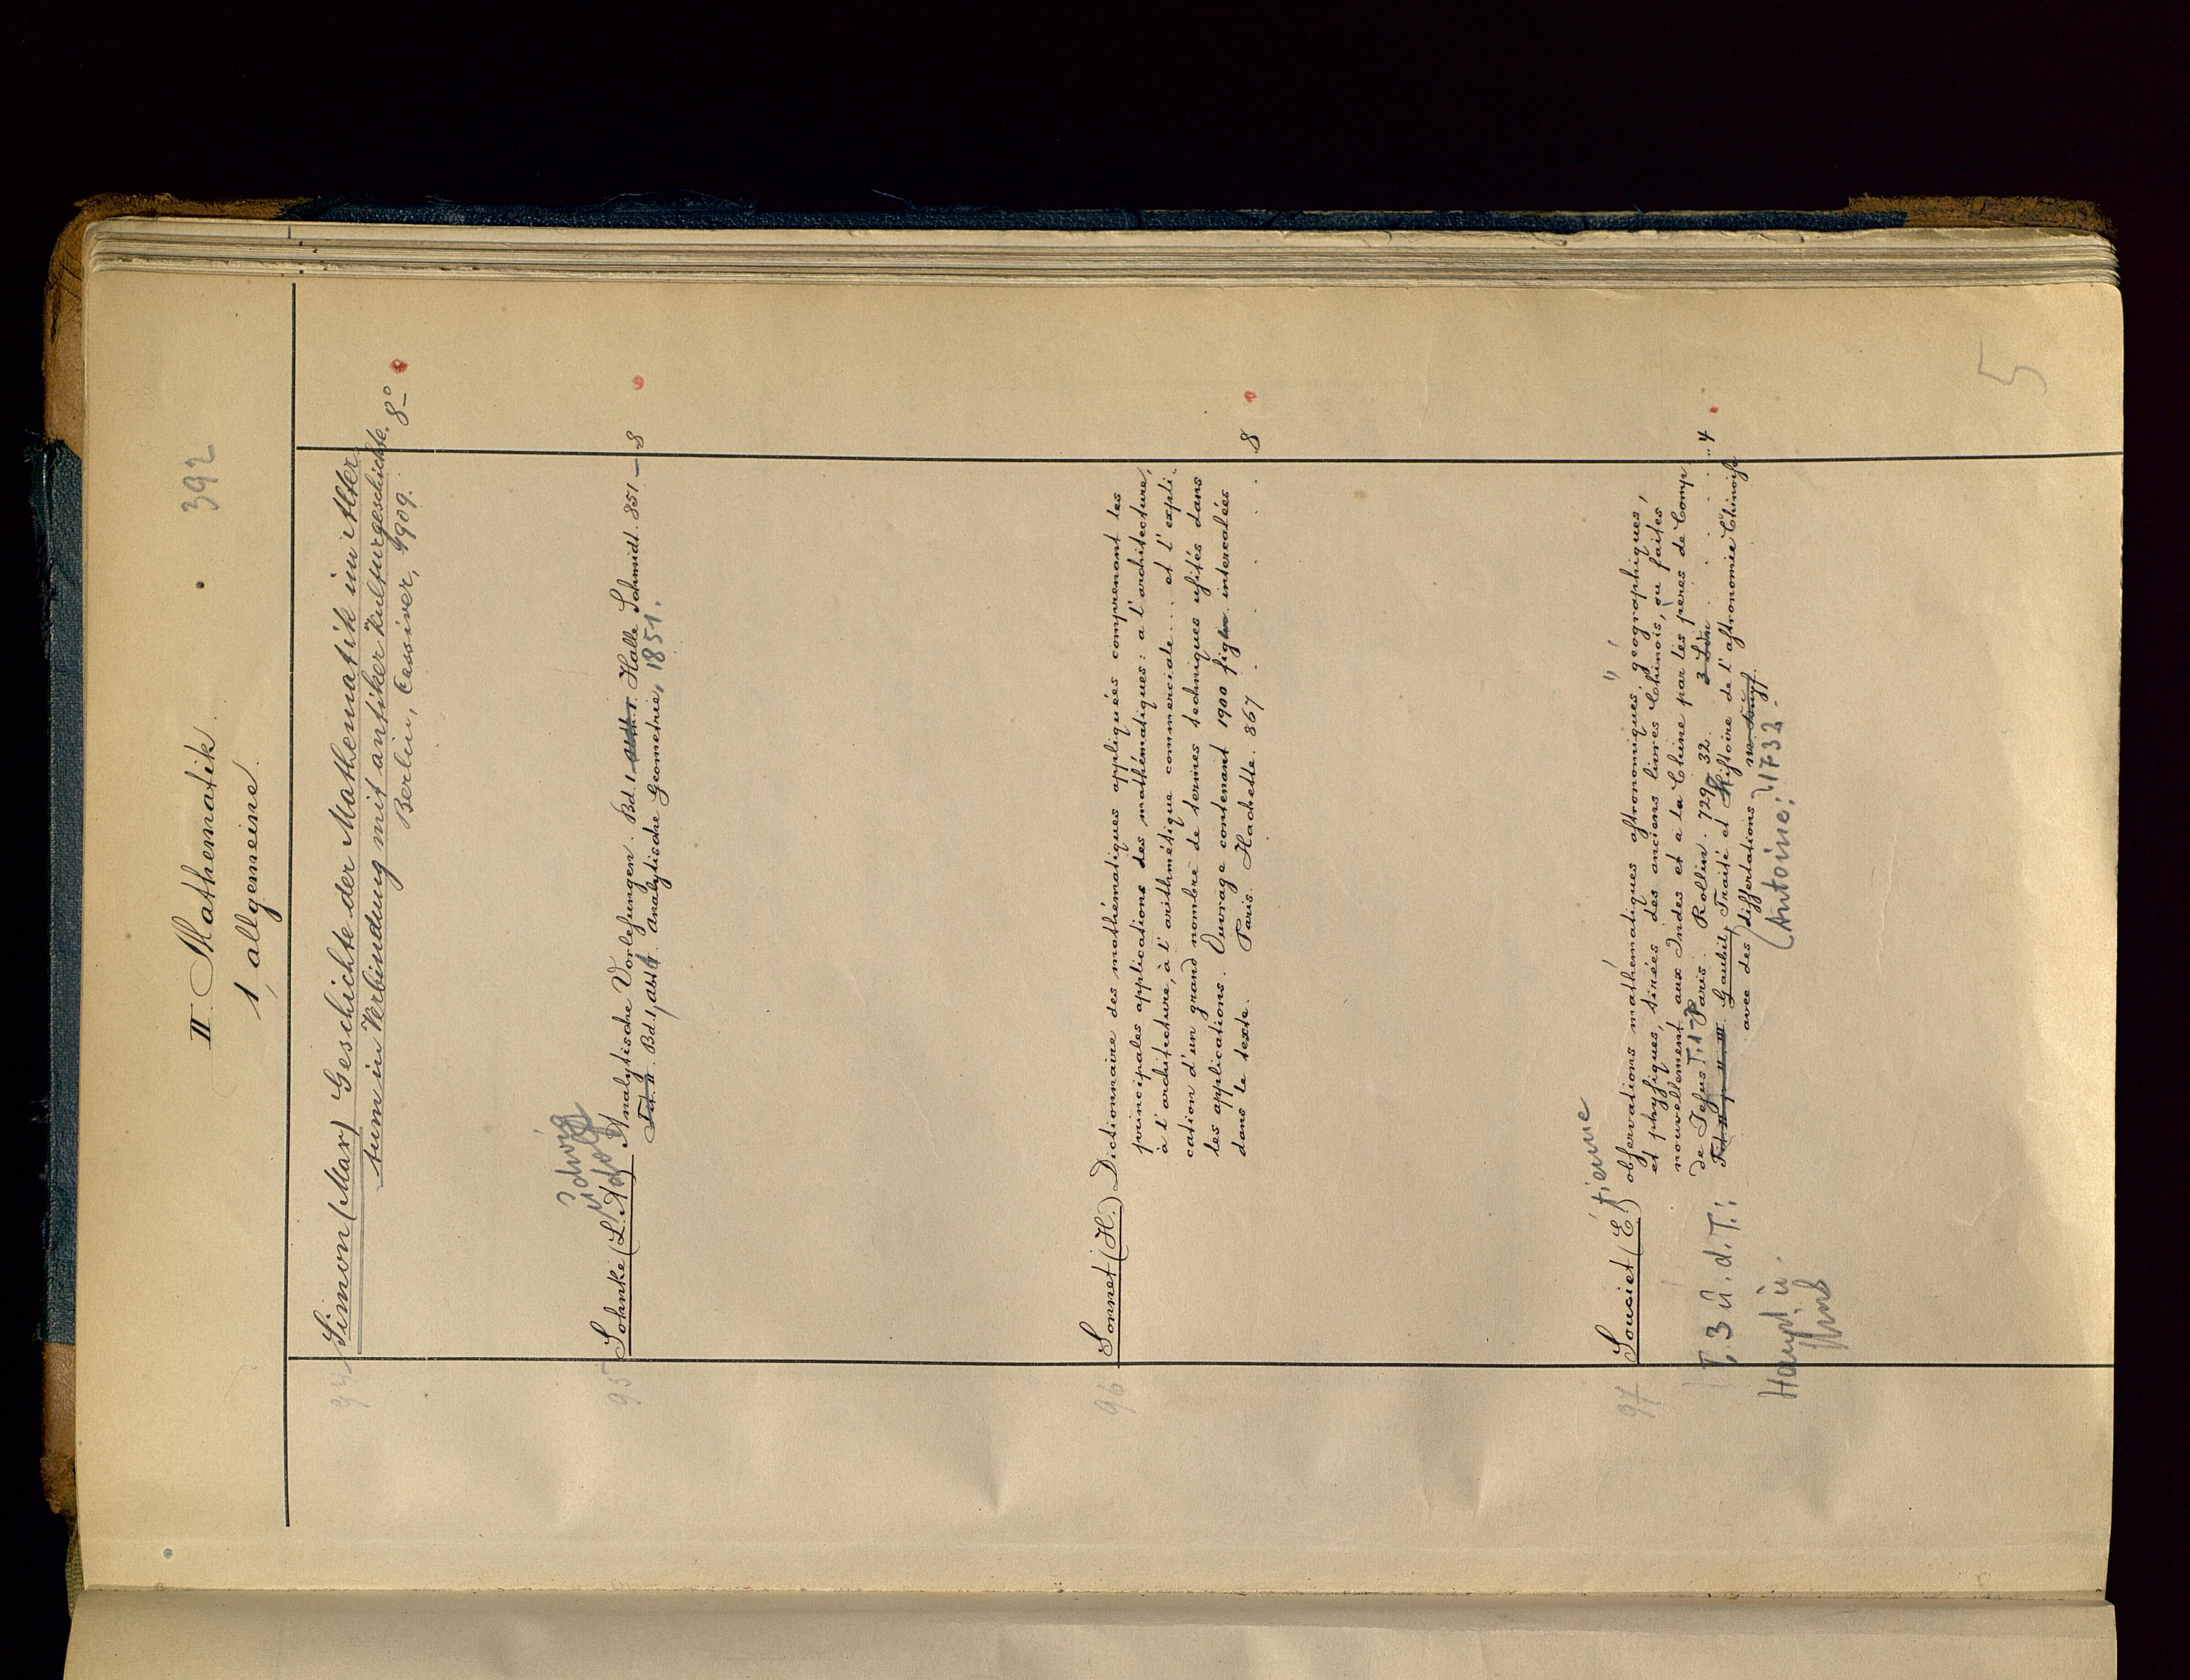 392
II. Mathematik.
1, allgemeine.
94 Simon (Max) Geschichte der Mathematik im Alter
tum in Verbindung mit antiker Kulturgeschichte. 8°
Berlin, Cassirer, 1909.
udwig
dolf
95 Sohnke (L. A.) Analytische Vorlesungen. Bd. 1. Halle Schmidt. 851 — 8
Bd. 1, Abt. Analytische Geometrie, 1851.
96 Sonnet (H.) Dictionnaire des mathématiques appliquées comprenant les
principales applications des mathématiques: a l'architecture,
à l'architecture, à l'arithmétique commerciale... et l'expli.
cation d'un grand nombre de termes techniques usités dans
les applications. Ouvrage contenant 1900 figures intercalées
dans le texte. Paris. Hachette. 867 . . . . . 8
tienne
97 Souciet (E.) observations mathématiques astronomiques geographiques,
et physiques, tirées des anciens livres Chinois, ou faites
nouvellement aux Indes et a la Chine par les peres de Comp.
de Jesus T. 1-3 Paris. Rollin. 729, 32. . . . . . " 4
T. 3 u. d. T.: Gaubil, Traité et Histoire de l'astronomie Chinoise
avec des dissertations. 1732.
(Antoine:
Haupt u.
5